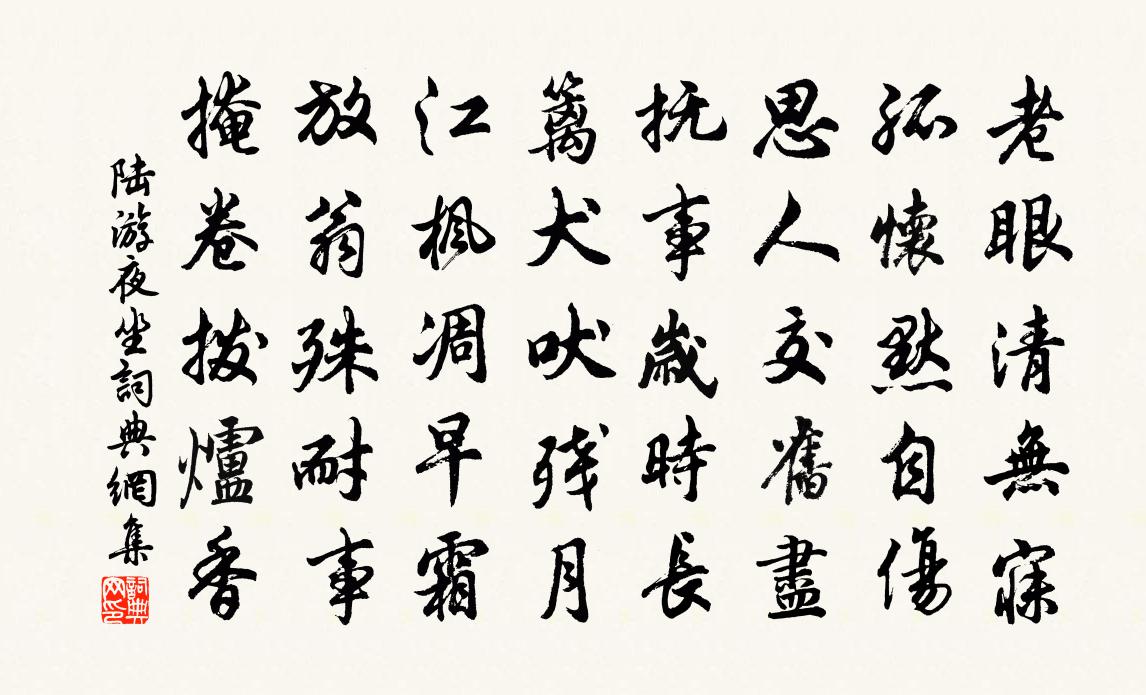 老眼清無寐
孤懷黙自傷
思人交舊盡
抚事歳時長
籬犬吠残月
江楓凋早霜
放翁殊耐事
掩卷拨爐香
陆游夜坐詞典網集
詞典网印